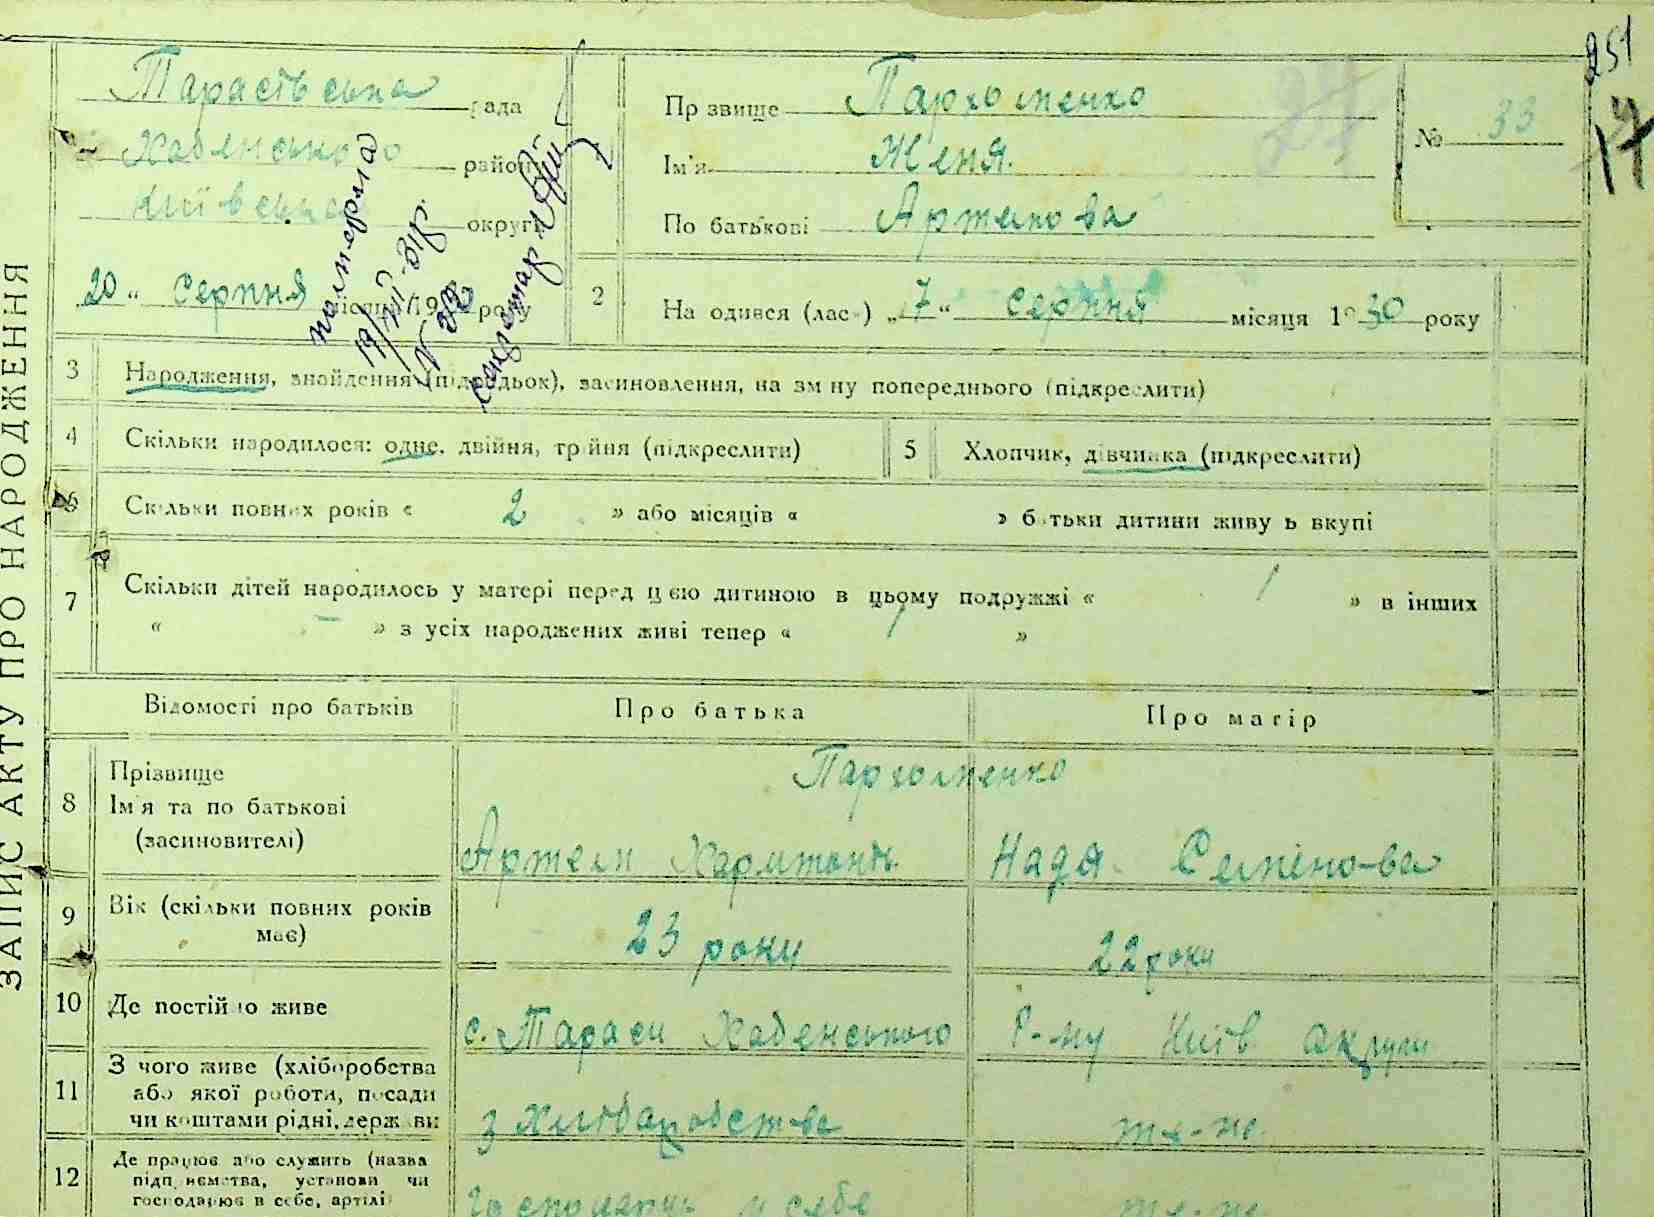 251
17
ЗАПИС АКТУ ПРО НАРОДЖЕННЯ
Тарасівська рада
Хабенського району
Київська округи
20 " серпня місяця 1930 року
померла
19/VII-31р.
N 22
секретар
1
Прізвище Пархоменко
Ім'я Женя.
По батькові Артемова
№ 33
27
2 На одився (лась) „7" серпня місяця 1930 року
3 Народження, знайдення (підкидьок), засиновлення, на зміну попереднього (підкреслити)
4 Скільки народилося: одне, двійня, трійня (підкреслити)
5 Хлопчик, дівчинка (підкреслити)
6 Скільки повних років « 2 » або місяців « » батьки дитини живуть вкупі
7 Скільки дітей народилось у матері перед цією дитиною в цьому подружжі « 1 » в інших
« – » з усіх народжених живі тепер « 1 »
Відомості про батьків Про батька Про матір
8 Прізвище
Ім'я та по батькові
(засиновителі)
Пархоменко
Артем Харитонів. Надя Семенова
9 Вік (скільки повних років
має)
23 роки 22 роки
10 Де постійно живе
с. Тараси Хабенського Р-ну Київ округи
11 З чого живе (хліборобства
або якої роботи, посади
чи коштами рідні, держави
з хліборобства те-же
12 Де працює або служить (назва
підприємства, установи чи
господарює в себе, артілі
господарує у себе те-же